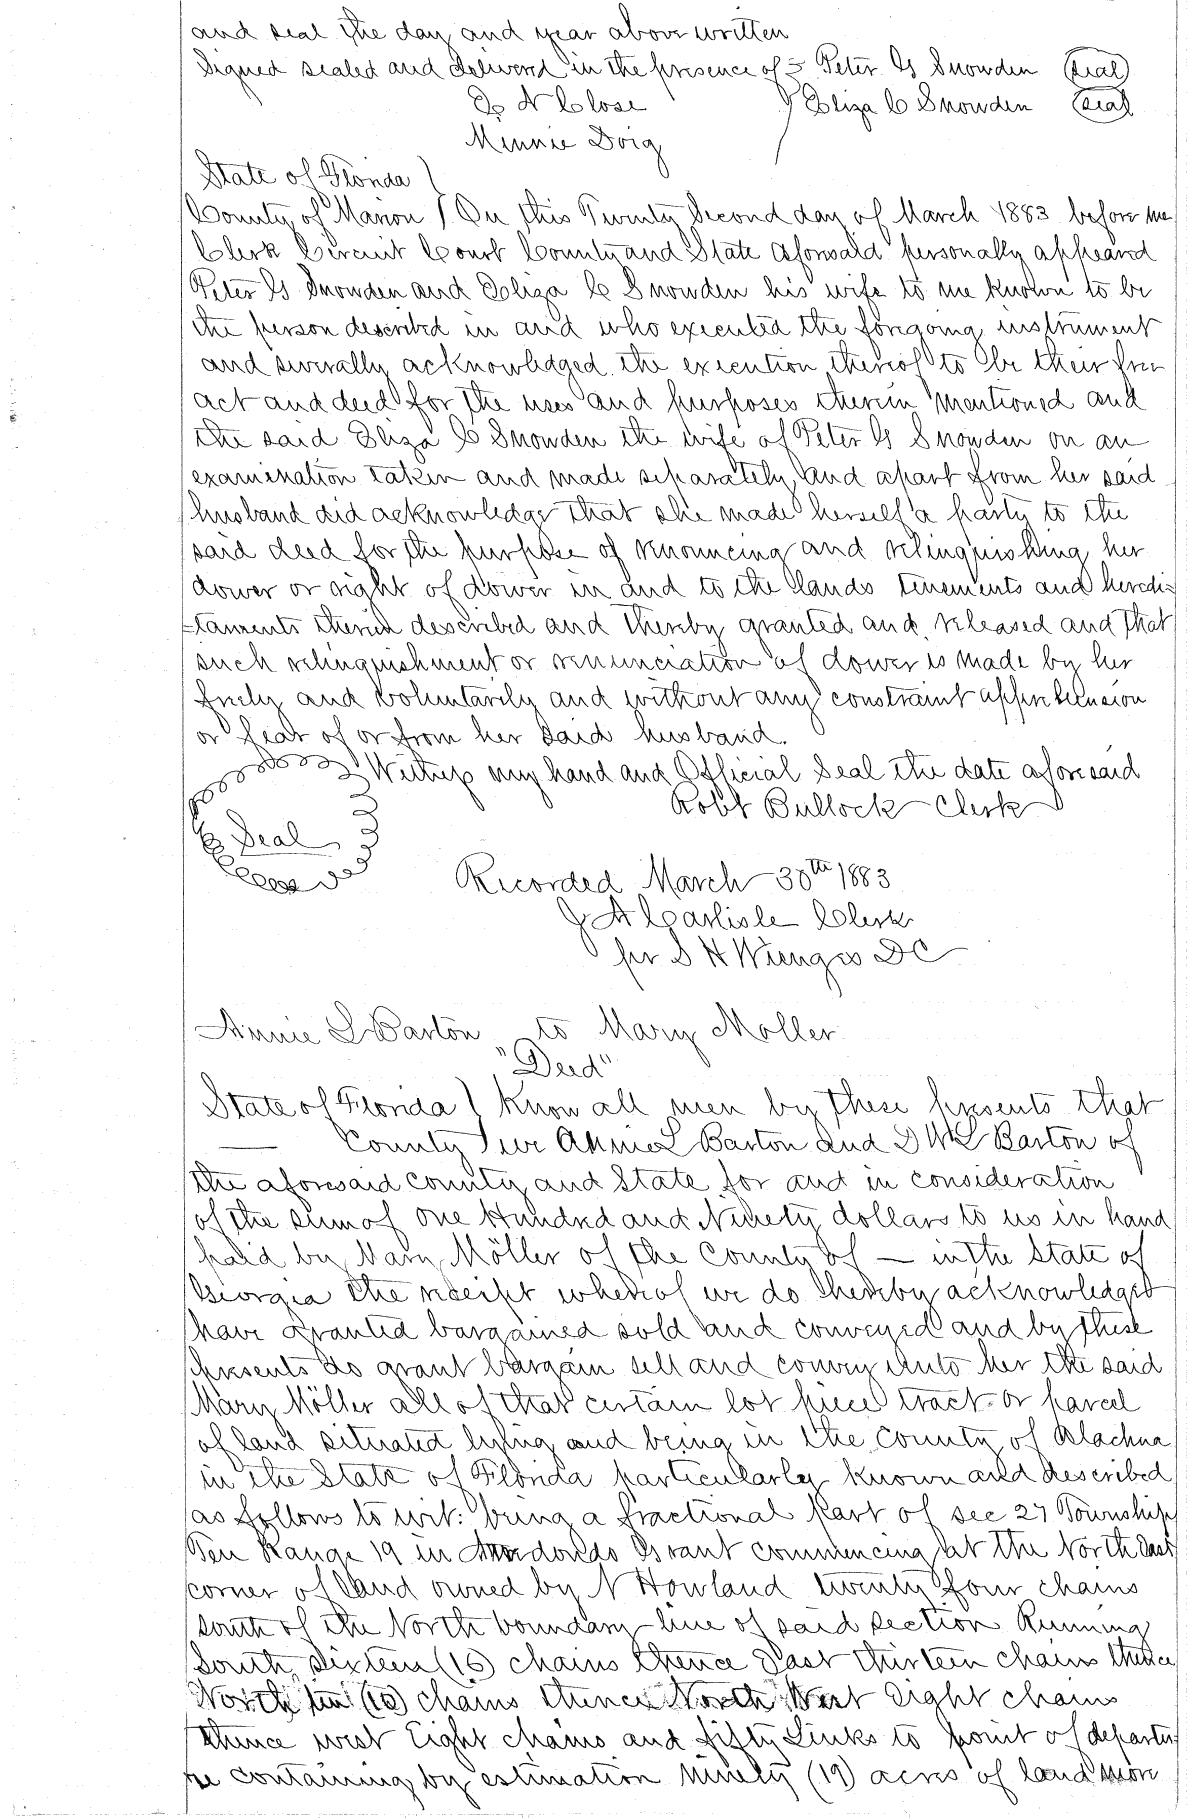 and seal the day and year above written
Signed sealed and delivered in the presence of Peter G Snowden (Seal)
E N Close Eliza C Snowden (Seal)
Minnie Doig
State of Florida )
County of Marion ) On this Twenty Second day of March 1883 before me
Clerk Circuit Court County and State aforesaid personally appeared
Peter G Snowden and Eliza C Snowden his wife to me known to be
the person described in and who executed the foregoing instrument
and severally acknowledged the execution thereof to be their free
act and deed for the uses and purposes therein mentioned and
the said Eliza C Snowden the wife of Peter G Snowden on an
examination taken and made separately and apart from her said
husband did acknowledge that she made herself a party to the
said deed for the purpose of renouncing and relinquishing her
dower or right of dower in and to the lands tenements and heredi=
=taments therein described and thereby granted and released and that
such relinquishment or renunciation of dower is made by her
freely and voluntarily and without any constraint apprehension
or fear of or from her said husband.
Witness my hand and Official Seal the date aforesaid
Robt Bullock Clerk
Seal
Recorded March 30th 1883
J A Carlisle Clerk
per S H Wienges DC
Annie L Barton to Mary Moller
"Deed"
State of Florida ) Know all men by these presents that
— County ) we Annie L Barton and D W L Barton of
the aforesaid county and State for and in consideration
of the sum of one Hundred and Ninety dollars to us in hand
paid by Mary Möller of the County of — in the State of
Georgia the receipt whereof we do thereby acknowledged
have granted bargained sold and conveyed and by these
presents do grant bargain sell and convey unto her the said
Mary Möller all of that certain lot piece tract or parcel
of land situated lying and being in the County of Alachua
in the State of Florida particularly known and described
as follows to wit: being a fractional part of sec 27 Township
Ten Range 19 in Arredondo Grant commencing at the North East
corner of land owned by N Howland twenty four chains
south of the North boundary line of said section Running
South Sixteen (16) chains thence East thirteen chains thence
North ten (10) chains thence North West Eight chains
thence west Eight chains and fifty Links to point of departu
re containing by estimation Ninety (19) acres of land more